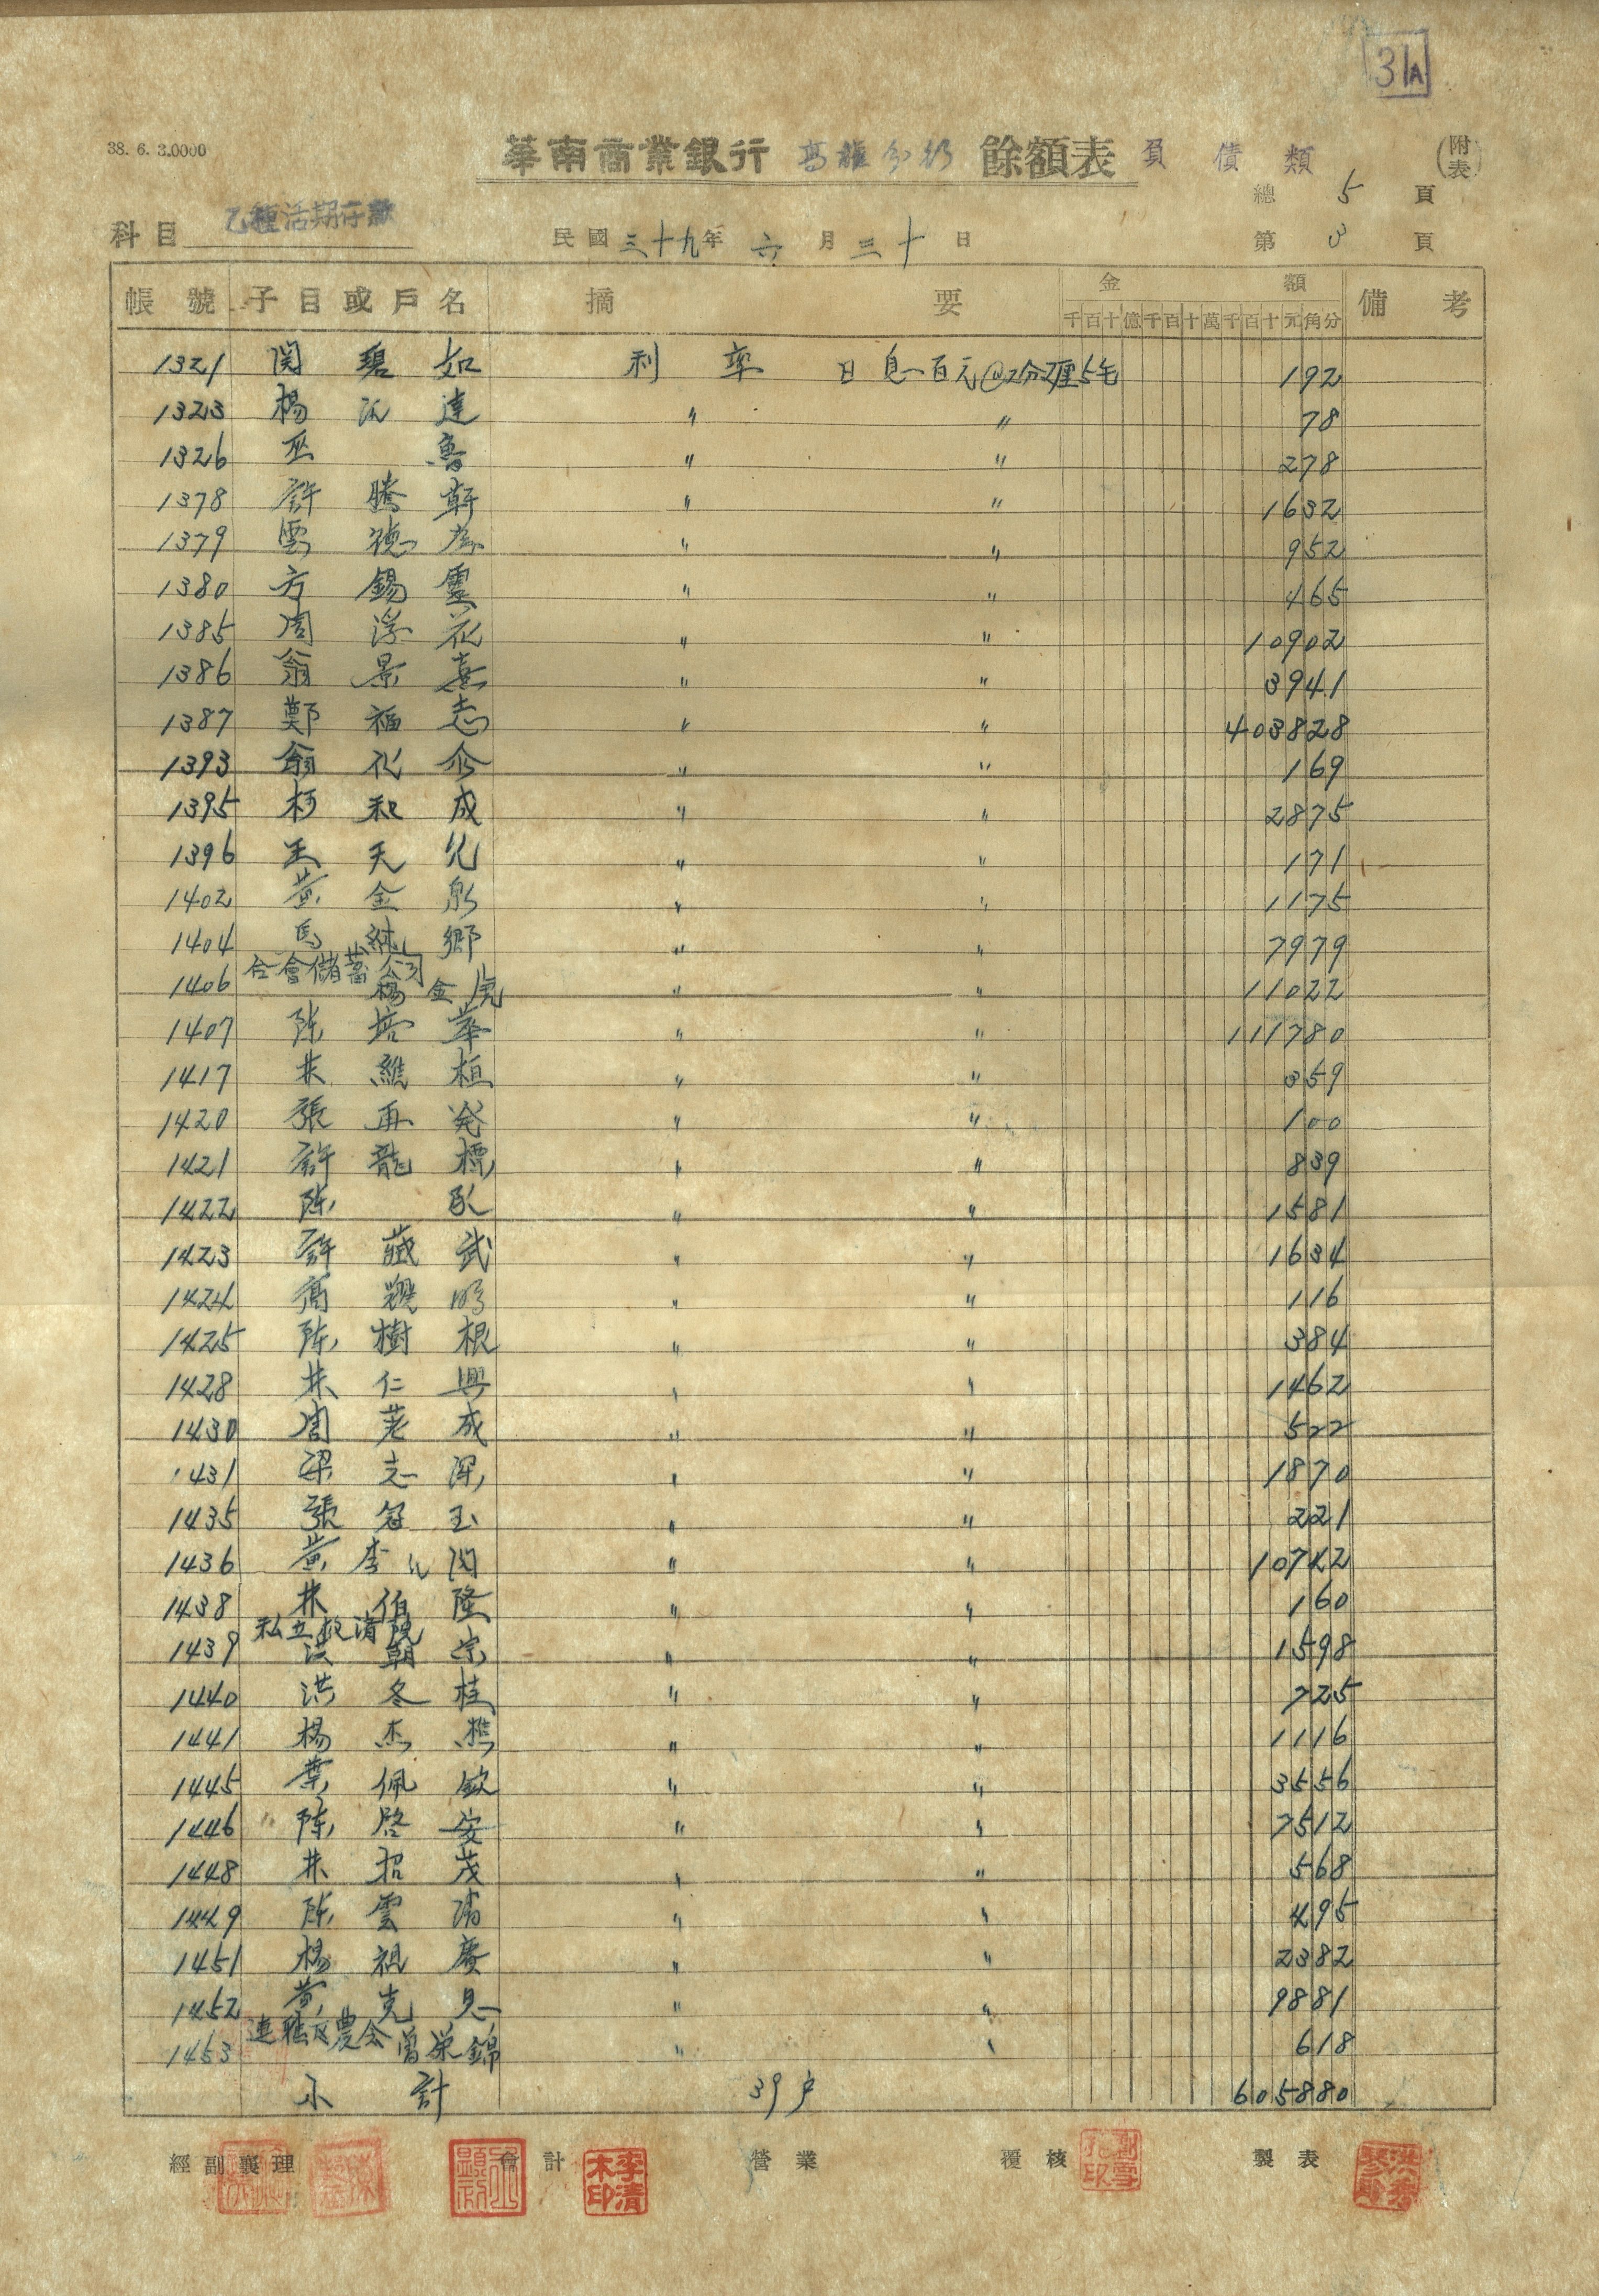 31A
38. 6. 3.0000
華南商業銀行 高雄分行 餘額表 負債類 (附表)
總 5 頁
科目 乙種活期存款 民國三十九年六月三十日 第 3 頁
帳號 子目或戶名 摘要 金額 備考
千百十億千百十萬千百十元角分
1321 関碧如 利率 日息百元@2分2厘5毛 192
1323 楊 達 〃 〃 78
1326 巫 魯 〃 〃 278
1378 許騰軒 〃 〃 1632
1379 雲德 〃 〃 952
1380 方錫靈 〃 〃 465
1385 周 花 〃 〃 10902
1386 翁景熹 〃 〃 3941
1387 鄭福志 〃 〃 403828
1393 翁 〃 〃 169
1395 柯和成 〃 〃 2875
1396 王天 〃 〃 171
1402 黃金 〃 〃 1175
1404 馬純鄉 〃 〃 7979
1406 合會儲蓄公司 楊金虎 〃 〃 11022
1407 陳培華 〃 〃 111780
1417 林維桓 〃 〃 359
1420 張再発 〃 〃 100
1421 許龍標 〃 〃 839
1422 陳 〃 〃 1581
1423 許藏武 〃 〃 1634
1424 高 〃 〃 116
1425 陳樹根 〃 〃 384
1428 林仁興 〃 〃 1462
1430 周老成 〃 〃 522
1431 梁志深 〃 〃 1870
1435 張冠玉 〃 〃 221
1436 黃李氏関 〃 〃 10742
1438 林伯隆 〃 〃 160
1439 私立救濟院 洪朝宗 〃 〃 1598
1440 洪冬桂 〃 〃 725
1441 楊杰樵 〃 〃 1116
1445 葉佩欽 〃 〃 3556
1446 陳啓安 〃 〃 7512
1448 林招茂 〃 〃 568
1449 陳雲清 〃 〃 495
1451 楊祖慶 〃 〃 2382
1452 黃克 〃 〃 9881
1453 連雅区農会 曾榮錦 〃 〃 618
小計 39户 605880
經副襄理 會計 營業 覆核 製表
李清木印